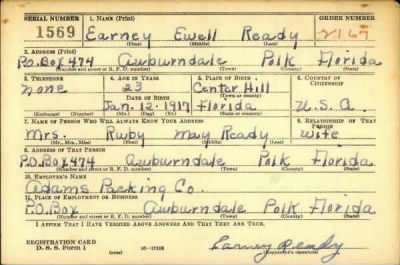 SERIAL NUMBER 1. NAME (Print) ORDER NUMBER
1569 Earney Ewell Ready 2167
(First) (Middle) (Last)
2. ADDRESS (Print)
P.O. Box 474 Auburndale Polk Florida
(Number and street or R. F. D. number) (Town) (County) (State)
3. TELEPHONE 4. AGE IN YEARS 5. PLACE OF BIRTH 6. COUNTRY OF CITIZENSHIP
none 23 Center Hill
(Town or county)
DATE OF BIRTH
Jan. 12. 1917 Florida U.S.A.
(Exchange) (Number) (Mo.) (Day) (Yr.) (State or country)
7. NAME OF PERSON WHO WILL ALWAYS KNOW YOUR ADDRESS 8. RELATIONSHIP OF THAT PERSON
Mrs. Ruby May Ready wife
(Mr., Mrs., Miss) (First) (Middle) (Last)
9. ADDRESS OF THAT PERSON
P.O. Box 474 Auburndale Polk Florida
(Number and street or R. F. D. number) (Town) (County) (State)
10. EMPLOYER'S NAME
Adams Packing Co.
11. PLACE OF EMPLOYMENT OR BUSINESS
P.O. Box Auburndale Polk Florida
(Number and street or R. F. D. number) (Town) (County) (State)
I AFFIRM THAT I HAVE VERIFIED ABOVE ANSWERS AND THAT THEY ARE TRUE.
REGISTRATION CARD
D. S. S. Form 1 (over) Earney Ready
(Registrant's signature)